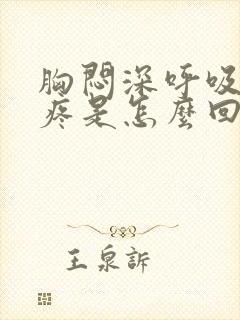 胸悶深呼吸
疼是怎麼回
王泉訴